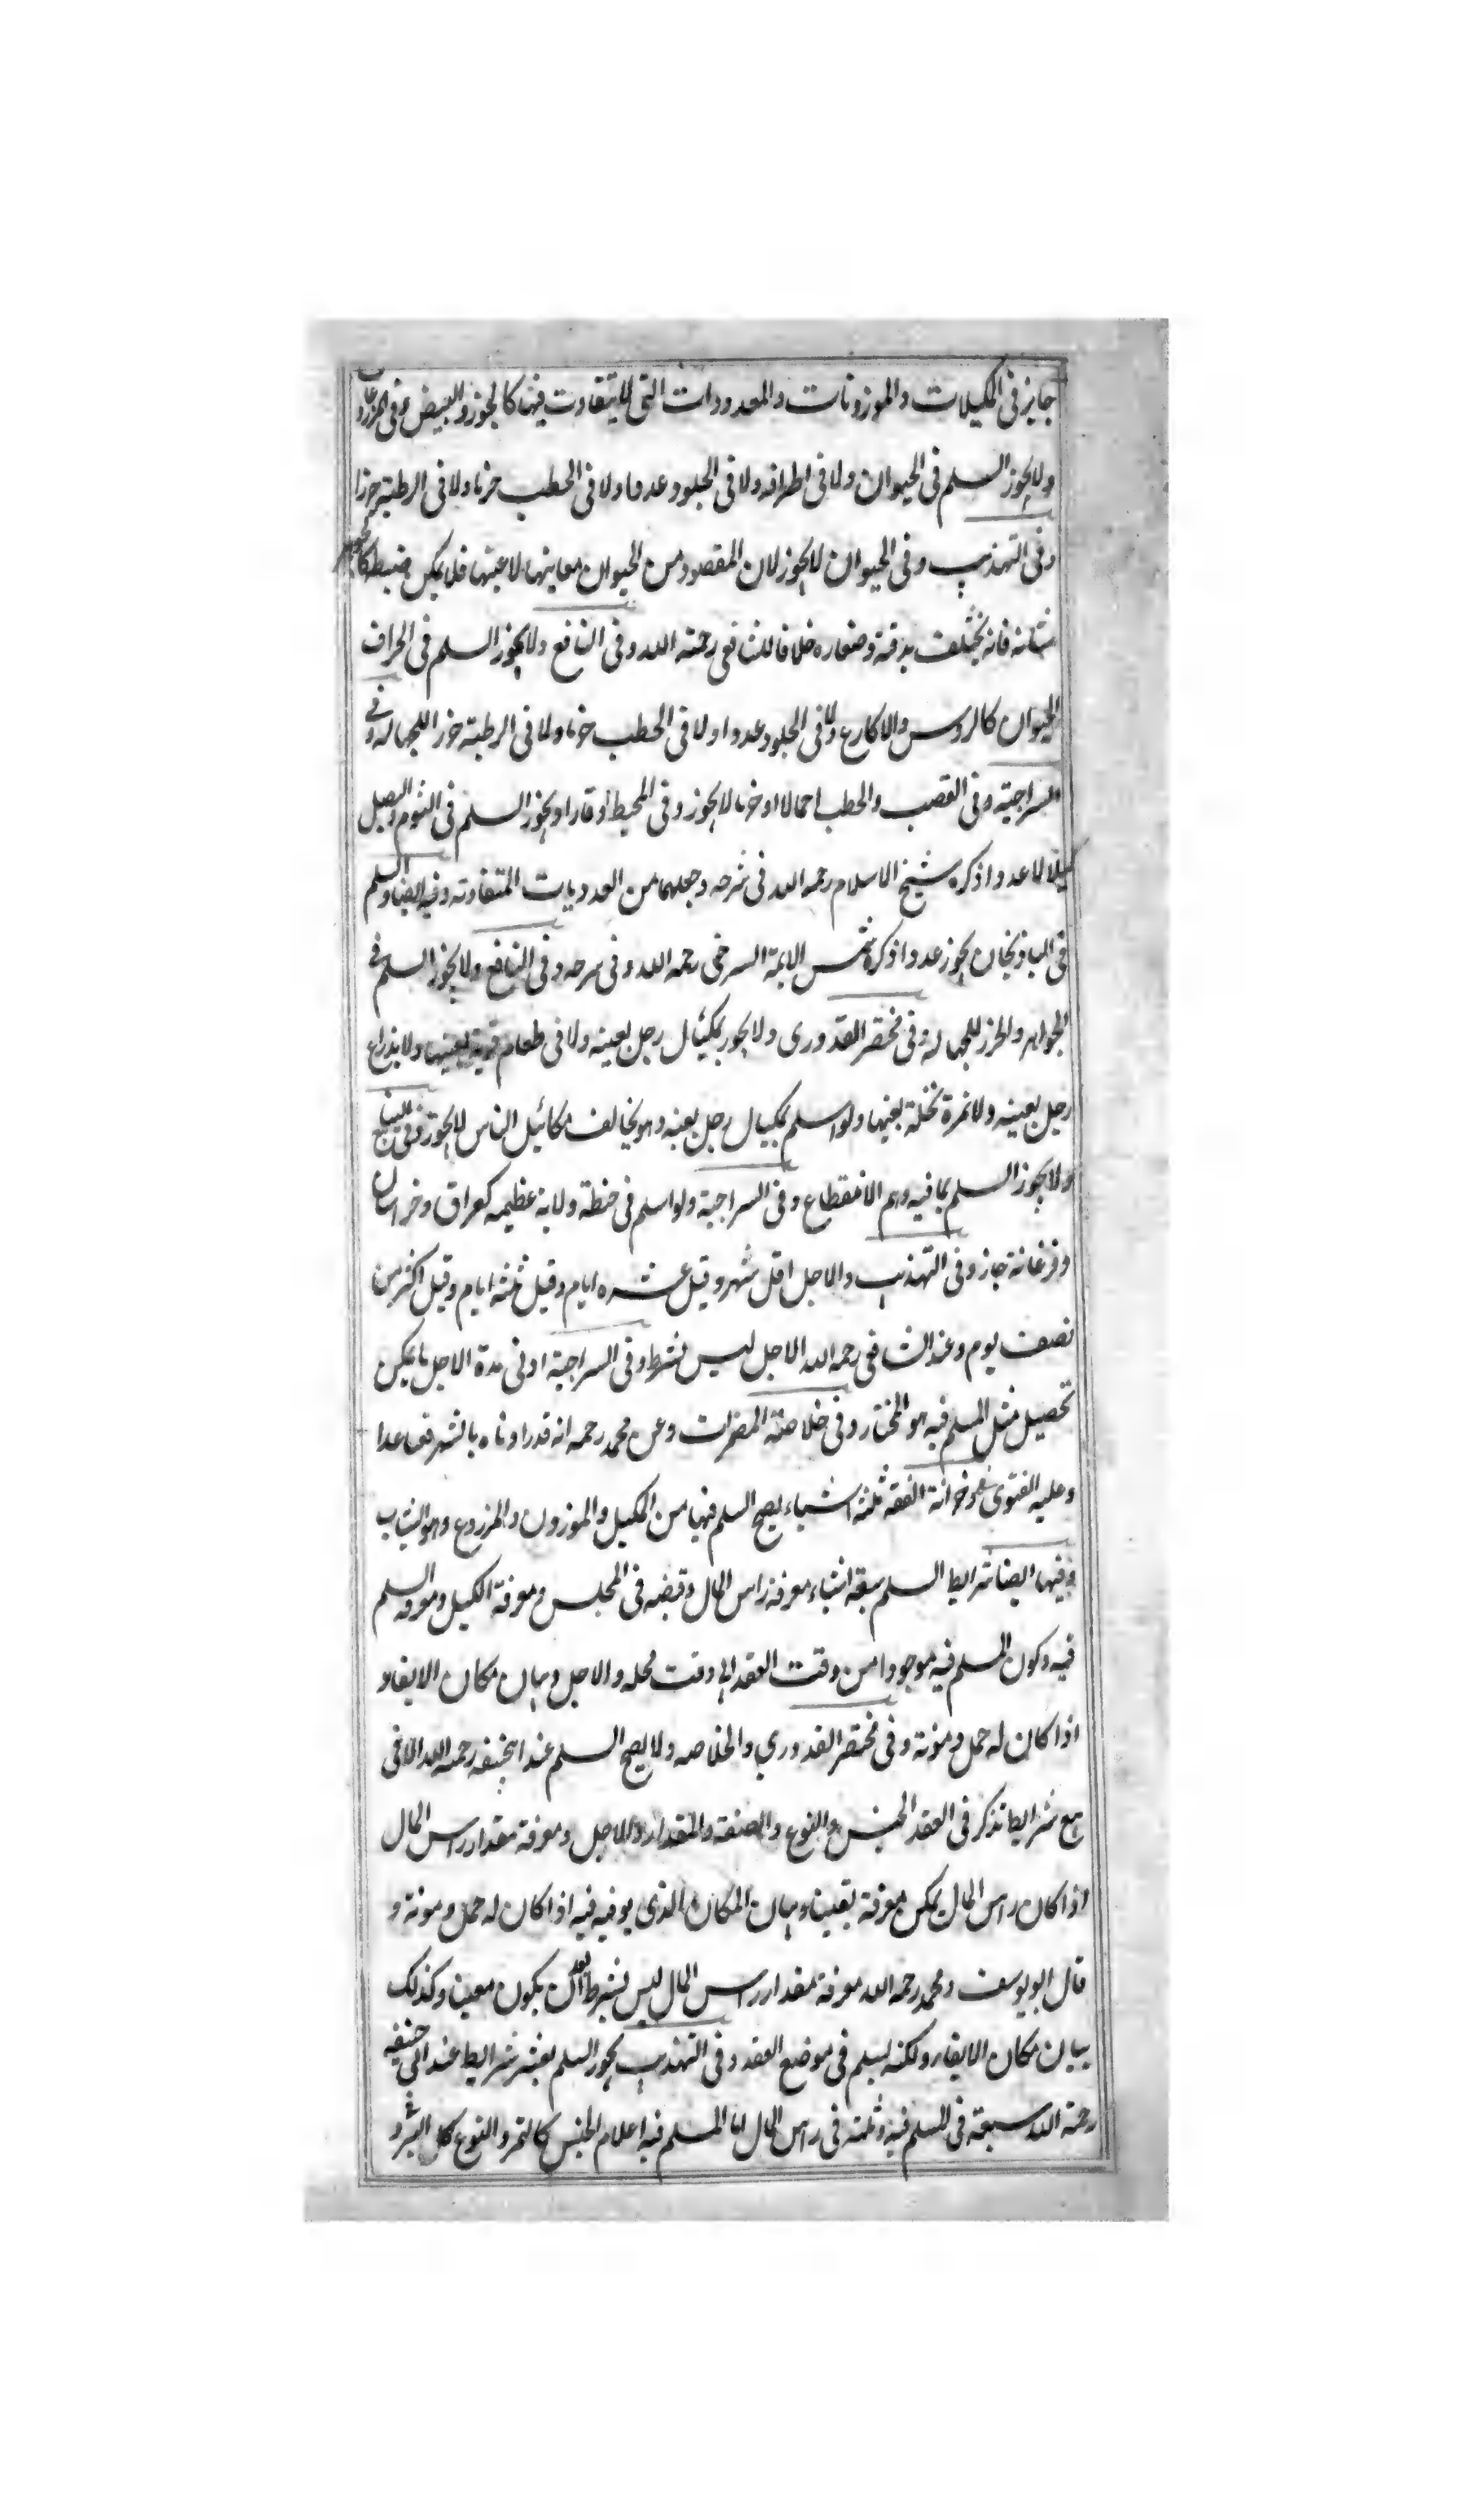 جايز فى المكيلات والموزونات والمعدودات التى لا يتفاوت فيها كالجوز والبيض وفى المزروعات
ولا يجوز السلم فى الحيوان ولا فى اطرافه ولا فى الجلود عددا ولا فى الحطب حزما ولا فى الرطبة جرزا
وفى التهذيب وفى الحيوان لا يجوز لان المقصود من الحيوان معاينها لا عينها فلا يمكن ضبطه
فانه يختلف بدقته وصغاره خلافا للشافعى رحمة الله وفى النافع ولا يجوز السلم فى اطراف
الحيوان كالروس والاكارع ولا فى الجلود عددا ولا فى الحطب حزما ولا فى الرطبة جرزا للجهالة وفى
السراجية وفى القصب والحطب احمالا او حزما لا يجوز وفى المحيط اوقارا ويجوز السلم فى الثوم والبصل
كيلا لا عددا ذكره شيخ الاسلام رحمه الله فى شرحه وجعلهما من العدديات المتفاوته وفيه ايضا والسلم
فى الباذنجان يجوز عددا ذكره شمس الايمة السرخى رحمه الله وفى سرحه وفى النافع ولا يجوز السلم فى
الجواهر والخرز للجهاله وفى مختصر القدورى ولا يجوز بمكيال رجل بعينه ولا فى طعام قرية بعينها ولا بذراع
رجل بعينه ولا ثمرة نخلة بعينها ولو اسلم بمكيال رجل بعينه وهو يخالف مكائيل الناس لا يجوز وفى الينابيع
ولا يجوز السلم بما فيه وهم الانقطاع وفى السراجية ولو اسلم فى حنطة ولاية عظيمه كعراق وخراسان
وفرغانة جاز وفى التهذيب والاجل اقل شهر وقيل عشره ايام وقيل ثلثة ايام وقيل اكثر من
نصف يوم وعند الشافعى رحمه الله الاجل ليس بشرط وفى السراجية ادنى مدة الاجل ما يمكن
تحصيل مثل المسلم فيه هو المختار وفى خلاصة المضمرات وعن محمد رحمه انه قدر ادناه بالشهر فصاعدا
وعليه الفتوى وفى خزانة الفقه ثلثة اشياء يصح السلم فيها من المكيل والموزون والمزروع وهو الثياب
وفيها ايضا شرايط السلم سبعة اشياء معرفة راس المال وقبضه فى المجلس ومعرفة الكيل ومعرفة السلم
فيه وكون المسلم فيه موجودا من وقت العقد الى وقت محله والاجل وبيان مكان الايفاء
اذا كان له حمل ومؤنة وفى مختصر القدوري والخلاصه ولا يصح السلم عند ابيحنيفه رحمه الله الا فى
سبع شرايط تذكر فى العقد الجنس والنوع والصفة والمقدار والاجل ومعرفة مقدار راس المال
اذا كان راس المال يمكن معرفة بقيناء وبيان المكان الذى يوفيه فيه اذا كان له حمل ومونة و
قال ابو يوسف ومحمد رحمه الله معرفة مقدار راس المال ليس بشرط بعد ان يكون معينا وكذلك
بيان مكان الايفاء ولكنه يسلم فى موضع العقد وفى التهذيب يجوز السلم بعشر شرايط عند ابى حنيفه
رحمة الله سبعة فى المسلم فيه وثلثة فى راس المال اما المسلم فيه اعلام الجنس كالتمر والنوع